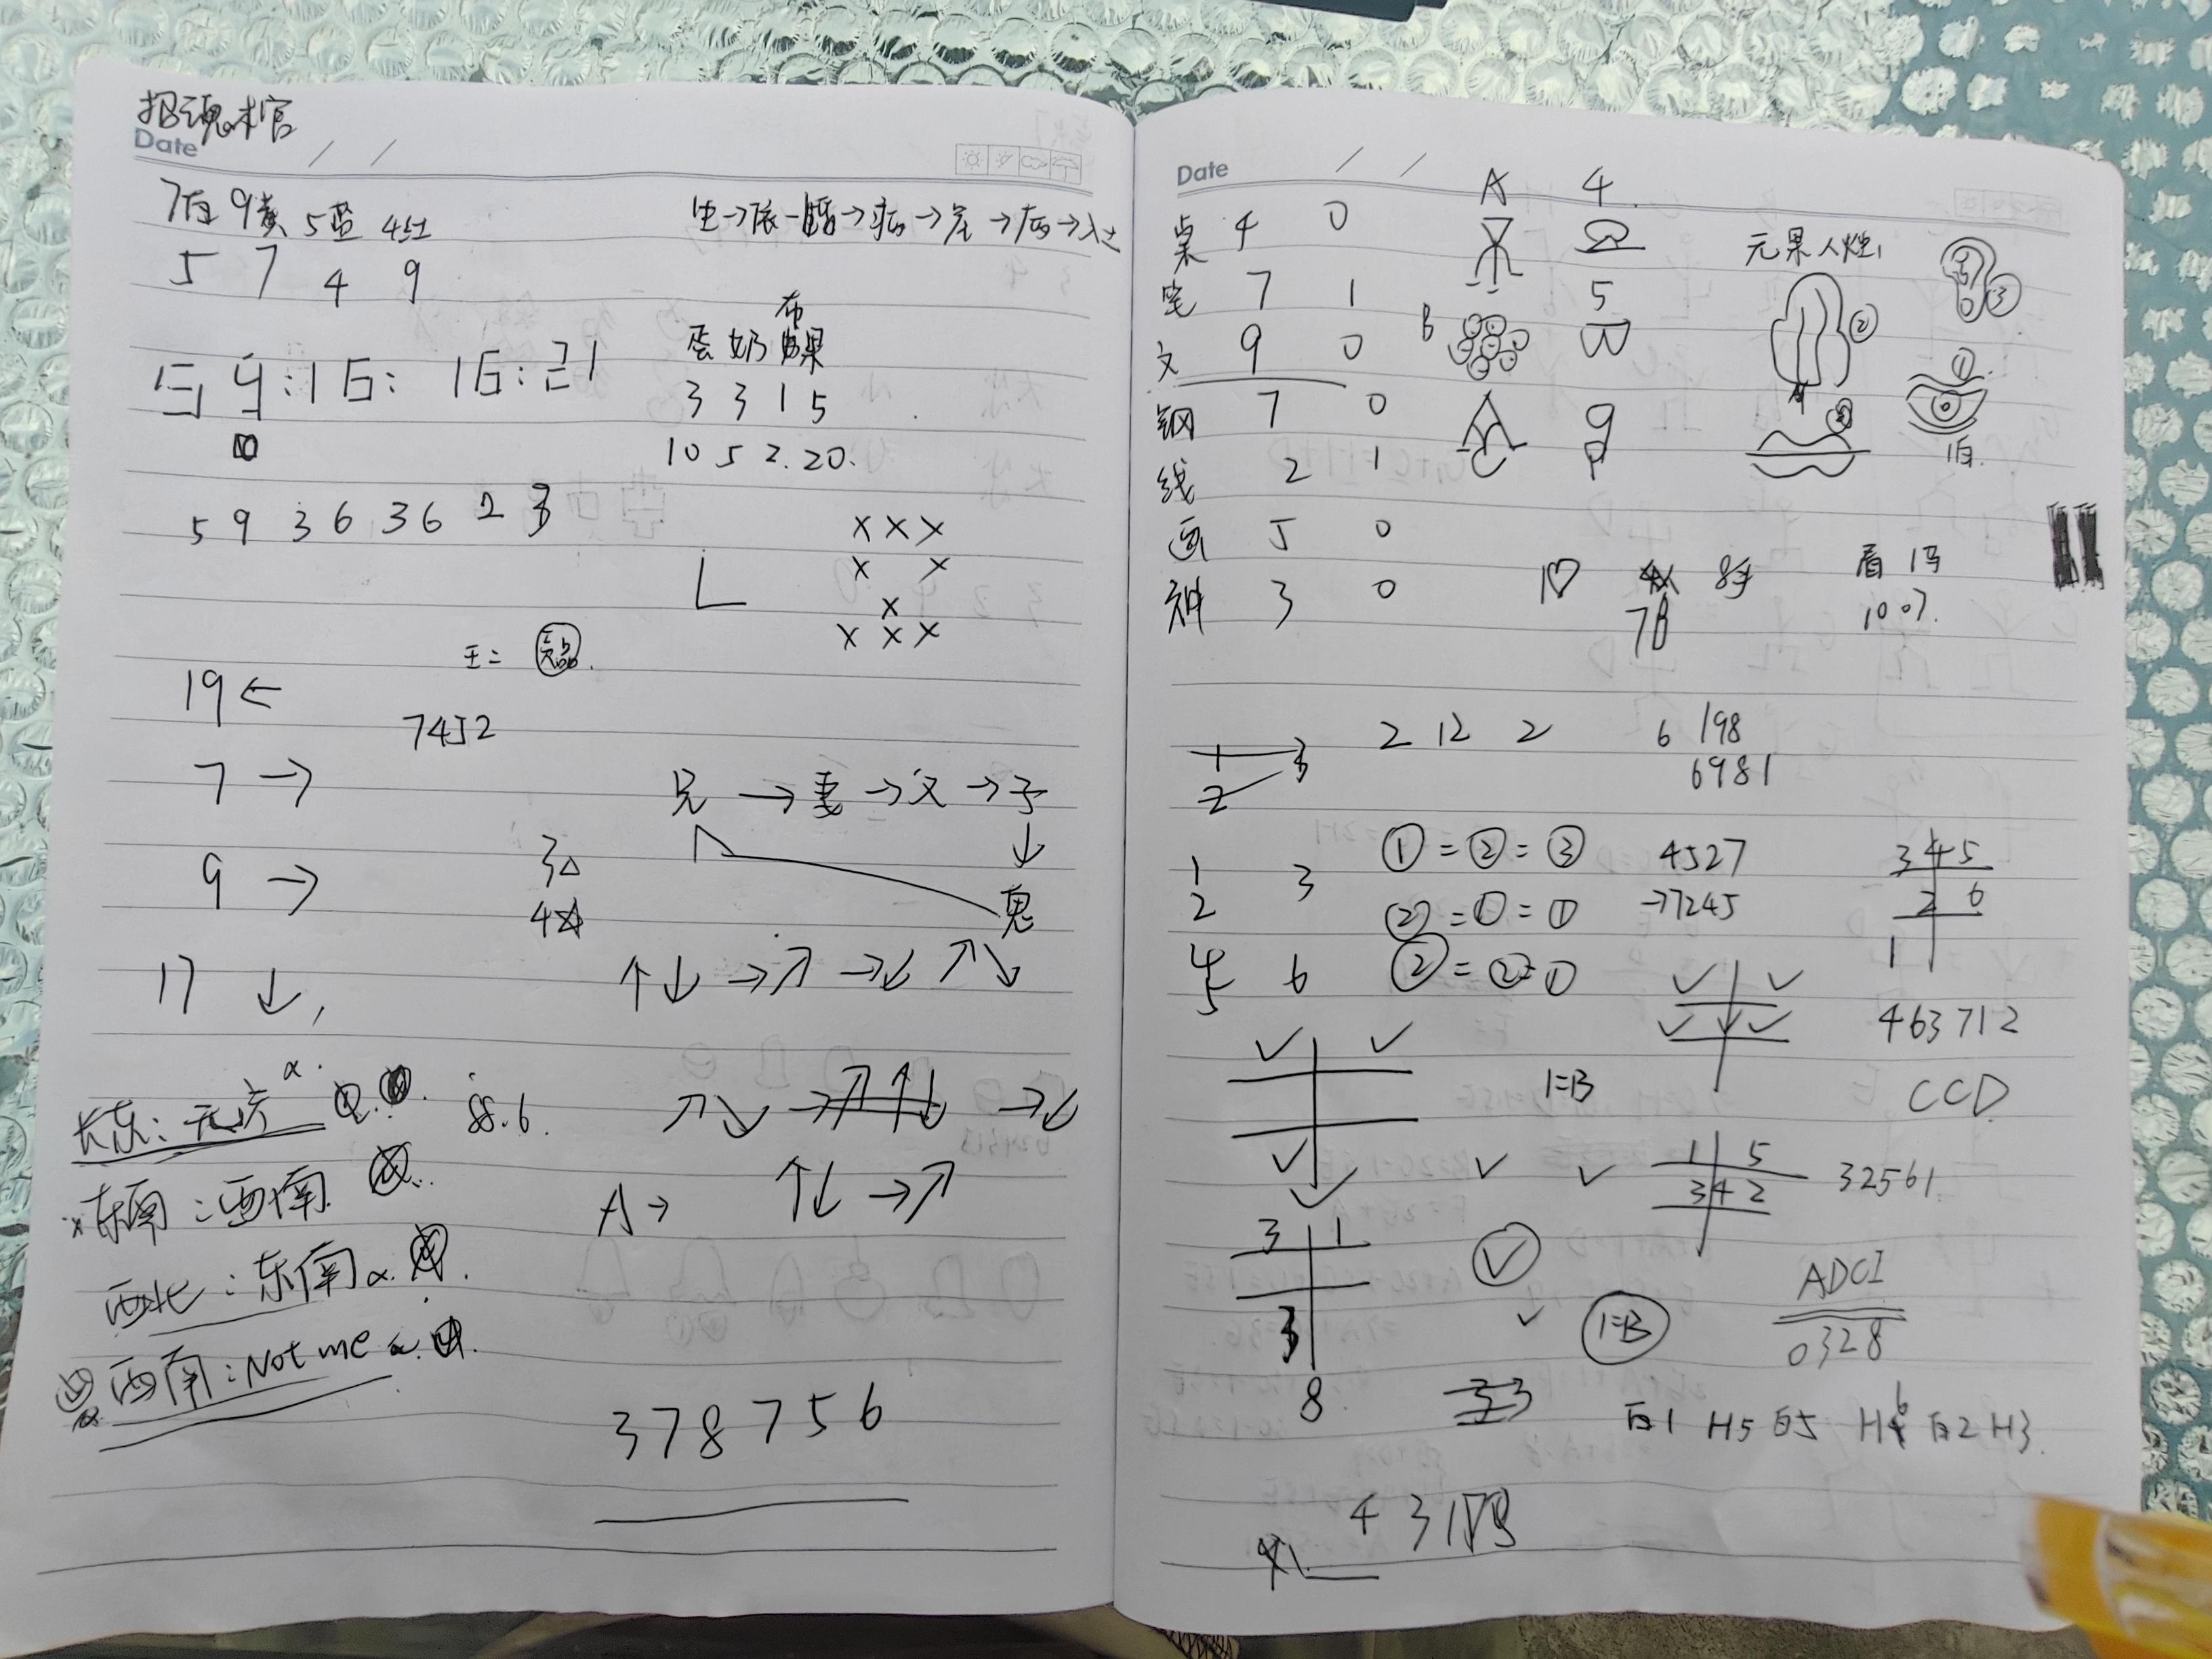 招魂木官
Date / /
7白 9黄 5蓝 4红
5 7 4 9
59:16:16:21
5 9 3 6 3 6 2 3
19 ←
7452
7 →
9 →
3△
4☆
17 ↓
东南:西南
西北:东南
西南:Not me
88.6
布
蛋 奶 果
3 3 1 5
10 5 2.20.
× × ×
× ×
×
× × ×
兄 → 妻 → 父 → 子
↓
鬼
↑↓ →↗ →↙ ↗↘
↗↘ → ↗ ↑↓ →↙
A → ↑↓ →↗
378756
Date / /
A 4
桌 4 0
宅 7 1
文 9 0
钢 7 0
线 2 1
画 5 0
神 3 0
B 5
9
元果人烛
② ③
①
1♡ 8手
7B
看 1马
1007.
1 3
2
2 12 2
6 198
6981
1 3
2
4 6
5
①=②=③
②=①=①
②=②=①
4527
→7245
3 4 5
2 6
1
✓ ✓
✓ ✓ ✓
463712
CCD
✓ ✓
1=B
✓ ✓ ✓
✓
1 5
3 4 2
32561
3 1
3
8
✓
✓
1=B
ADCI
0328
白1 H5 白5 H6 白2 H3.
4 3 1